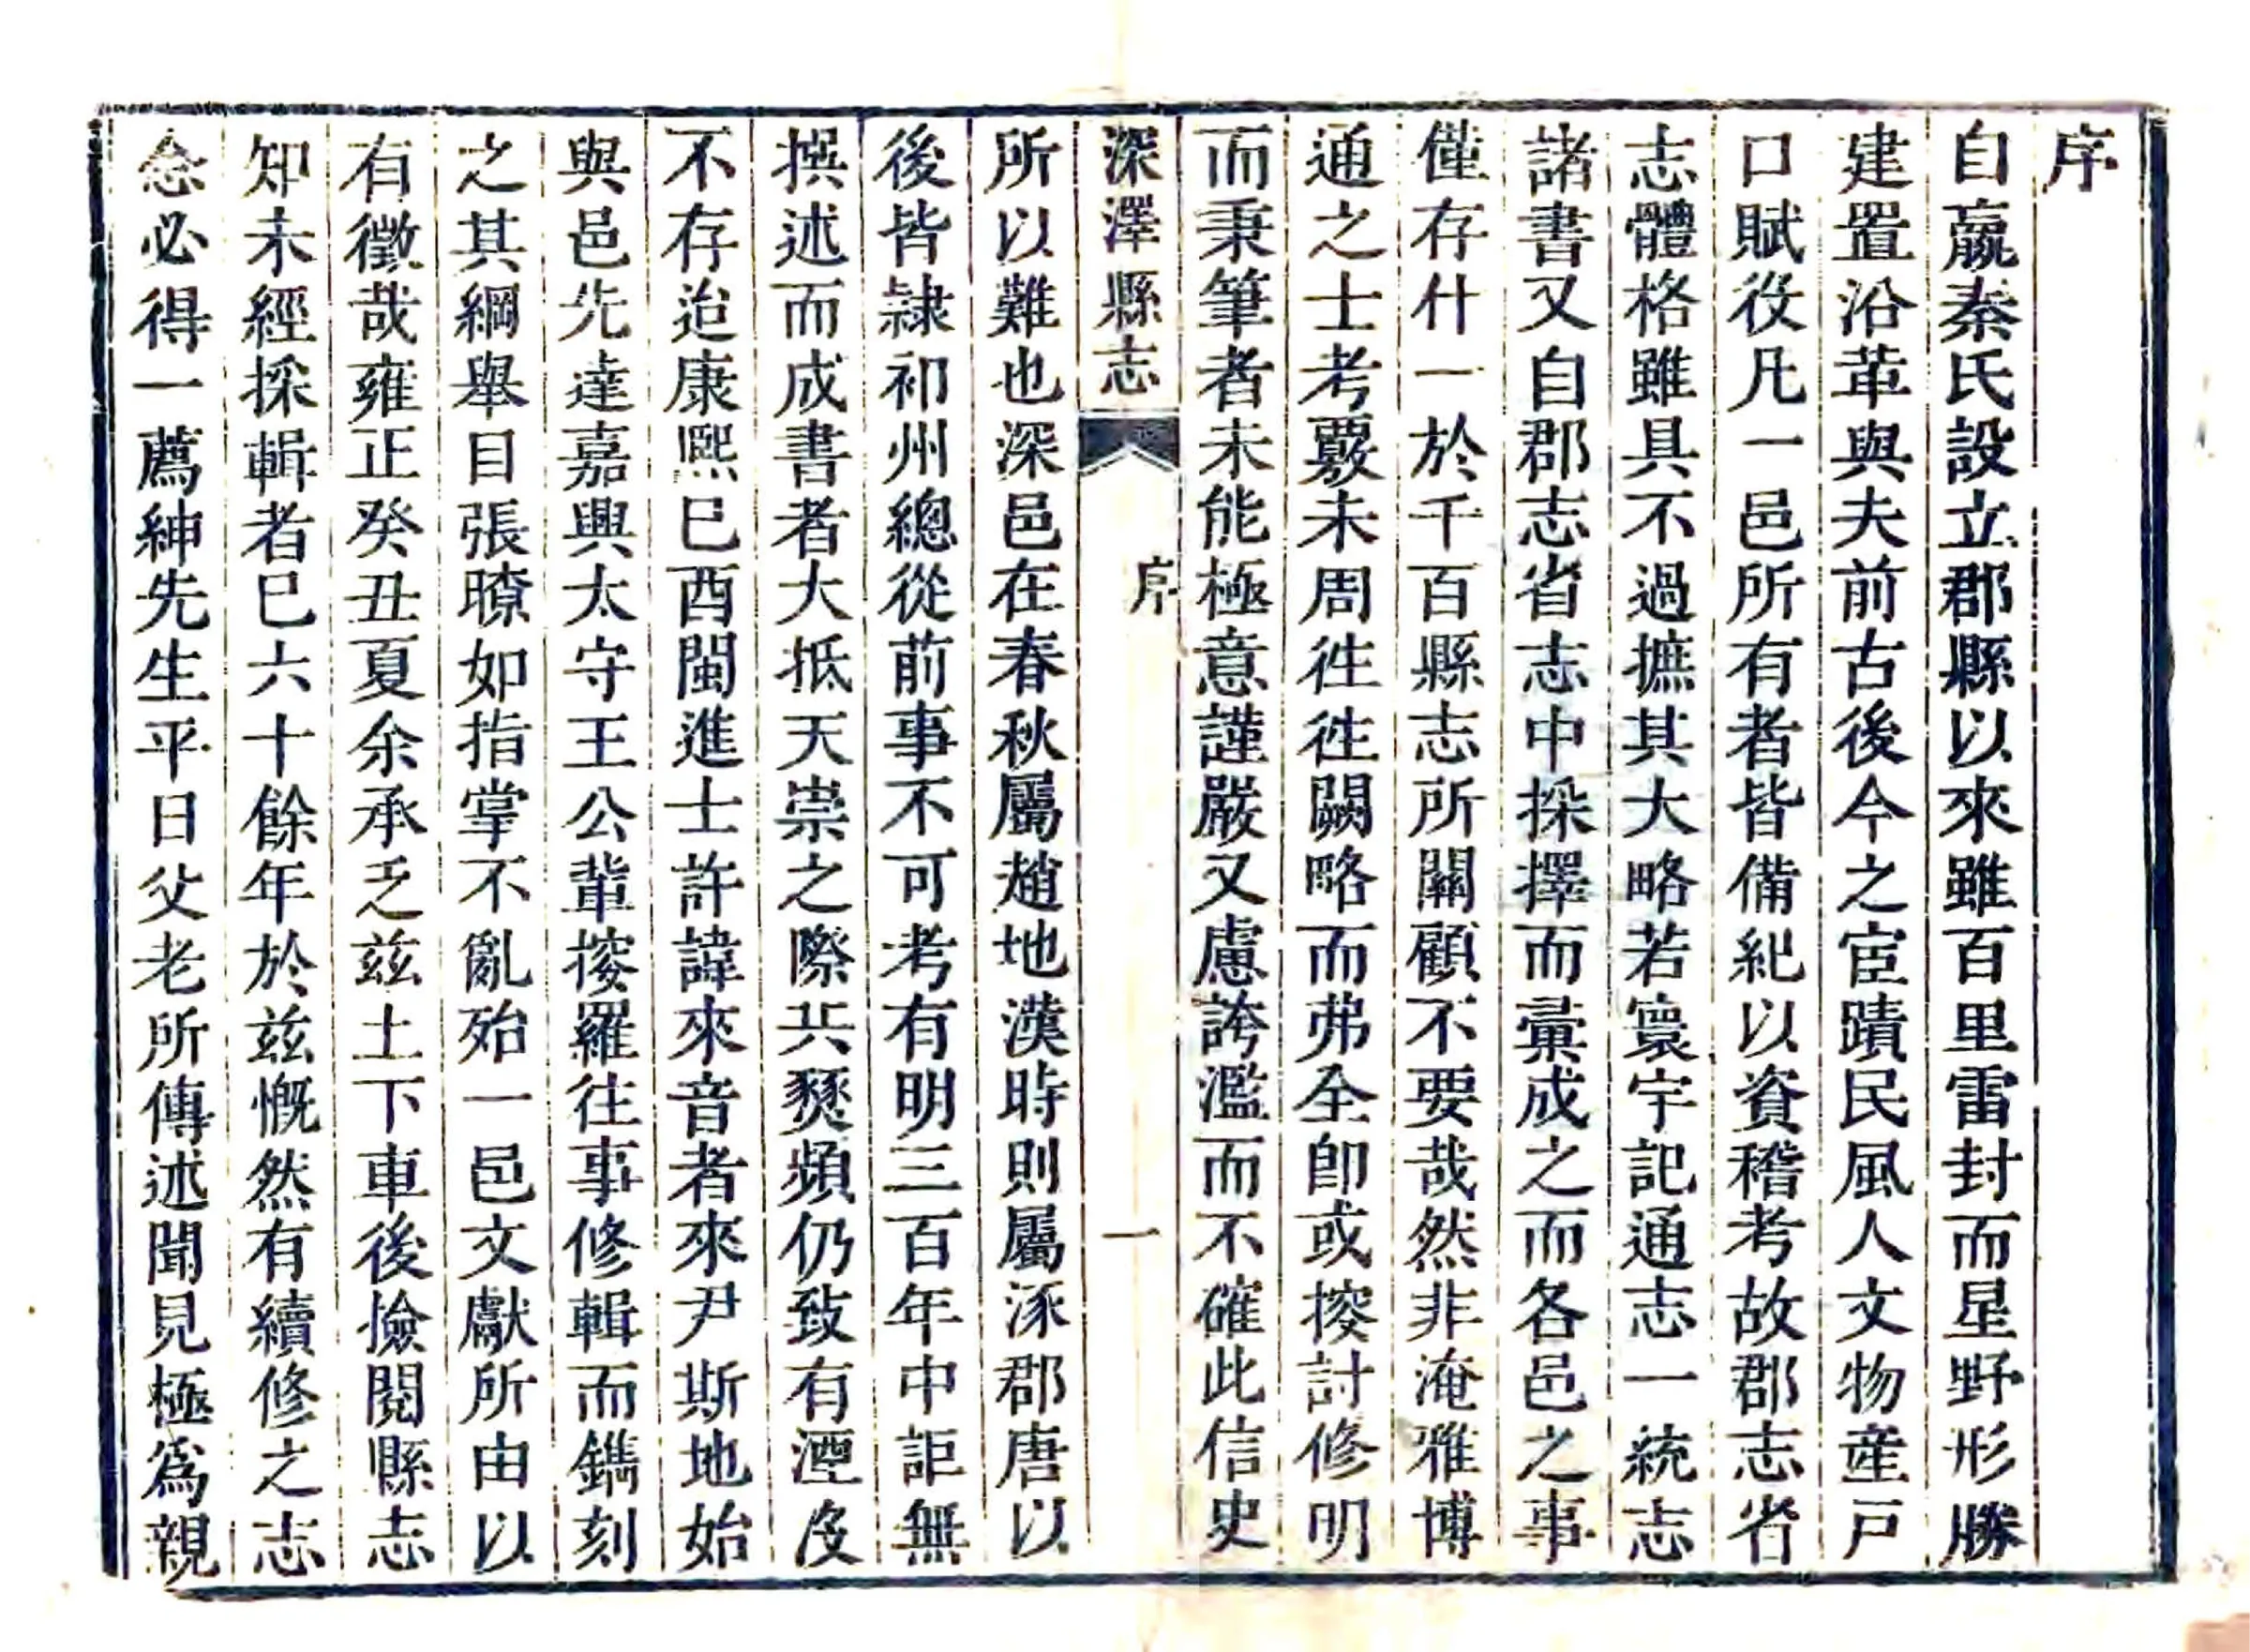 序
自嬴秦氏設立郡縣以來雖百里雷封而星野形勝
建置沿革與夫前古後今之宦蹟民風人文物産戸
口賦役凡一邑所有者皆備紀以資稽考故郡志省
志體格雖具不過摭其大略若寰宇記通志一統志
諸書又自郡志省志中採擇而彙成之而各邑之事
僅存什一於千百縣志所關顧不要哉然非淹雅博
通之士考覈未周徃徃闕略而弗全卽或搜討修明
而秉筆者未能極意謹嚴又慮誇濫而不確此信史
深澤縣志 序 一
所以難也深邑在春秋屬趙地漢時則屬涿郡唐以
後皆隷祁州總從前事不可考有明三百年中詎無
撰述而成書者大抵天崇之際兵燹頻仍致有湮没
不存迨康熙巳酉閩進士許諱來音者來尹斯地始
與邑先達嘉興太守王公輩搜羅往事修輯而鐫刻
之其綱舉目張暸如指掌不亂殆一邑文獻所由以
有徵哉雍正癸丑夏余承乏兹土下車後撿閱縣志
知未經採輯者巳六十餘年於兹慨然有續修之志
念必得一薦紳先生平日父老所傳述聞見極爲親